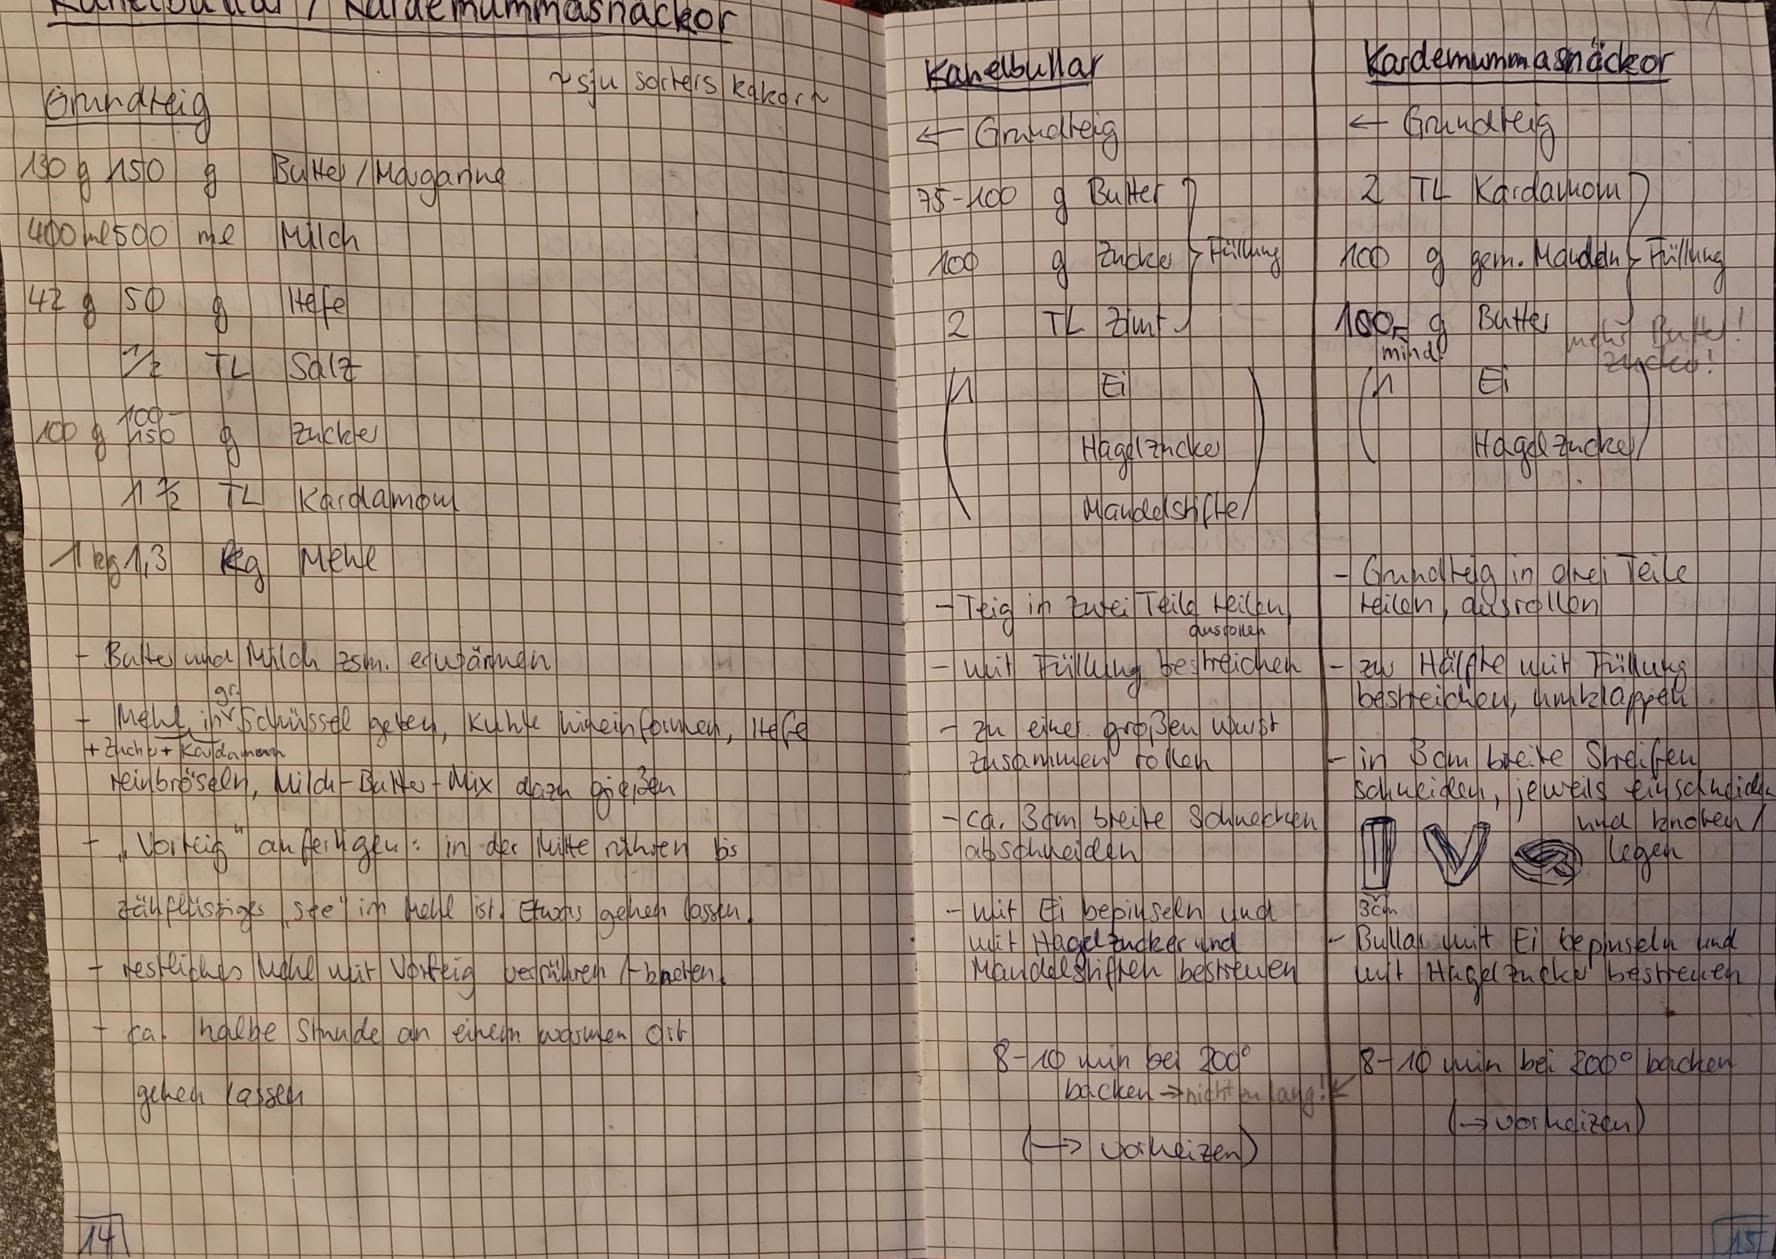 Kanelbullar / Kardemummasnäckor
~ sju sorters kakor ~
Grundteig
130 g 150 g Butter/Margarine
400 ml 500 ml Milch
42 g 50 g Hefe
1/2 TL Salz
100-
100 g 150 g Zucker
1 1/2 TL Kardamom
1 kg 1,3 kg Mehl
- Butter und Milch zsm. erwärmen
gr.
- Mehl in Schüssel geben, Kuhle hineinformen, Hefe
+ Zucker + Kardamom
reinbröseln, Milch-Butter-Mix dazu gießen
- "Vorteig" anfertigen: in der Mitte rühren bis
zähflüssiger "See" im Mehl ist. Etwas gehen lassen.
- restliches Mehl mit Vorteig verrühren/-kneten.
- ca. halbe Stunde an einem warmen Ort
gehen lassen
14
Kanelbullar
← Grundteig
75-100 g Butter
100 g Zucker } Füllung
2 TL Zimt
(1 Ei
Hagelzucker
Mandelstifte)
- Teig in zwei Teile teilen,
ausrollen
- mit Füllung bestreichen
- zu einer großen Wurst
zusammen rollen
- ca. 3cm breite Schnecken
abschneiden
- mit Ei bepinseln und
mit Hagelzucker und
Mandelstiften bestreuen
8-10 min bei 200°
backen → nicht zu lang!
(→ vorheizen)
Kardemummasnäckor
← Grundteig
2 TL Kardamom
100 g gem. Mandeln } Füllung
100 g Butter
mind.
mehr Butter!
Zucker!
(1 Ei
Hagelzucker)
- Grundteig in drei Teile
teilen, ausrollen
- zur Hälfte mit Füllung
bestreichen, umklappen
- in 3cm breite Streifen
schneiden, jeweils einschneiden
und knoten/
legen
3cm
- Bullar mit Ei bepinseln und
mit Hagelzucker bestreuen
8-10 min bei 200° backen
(→ vorheizen)
15